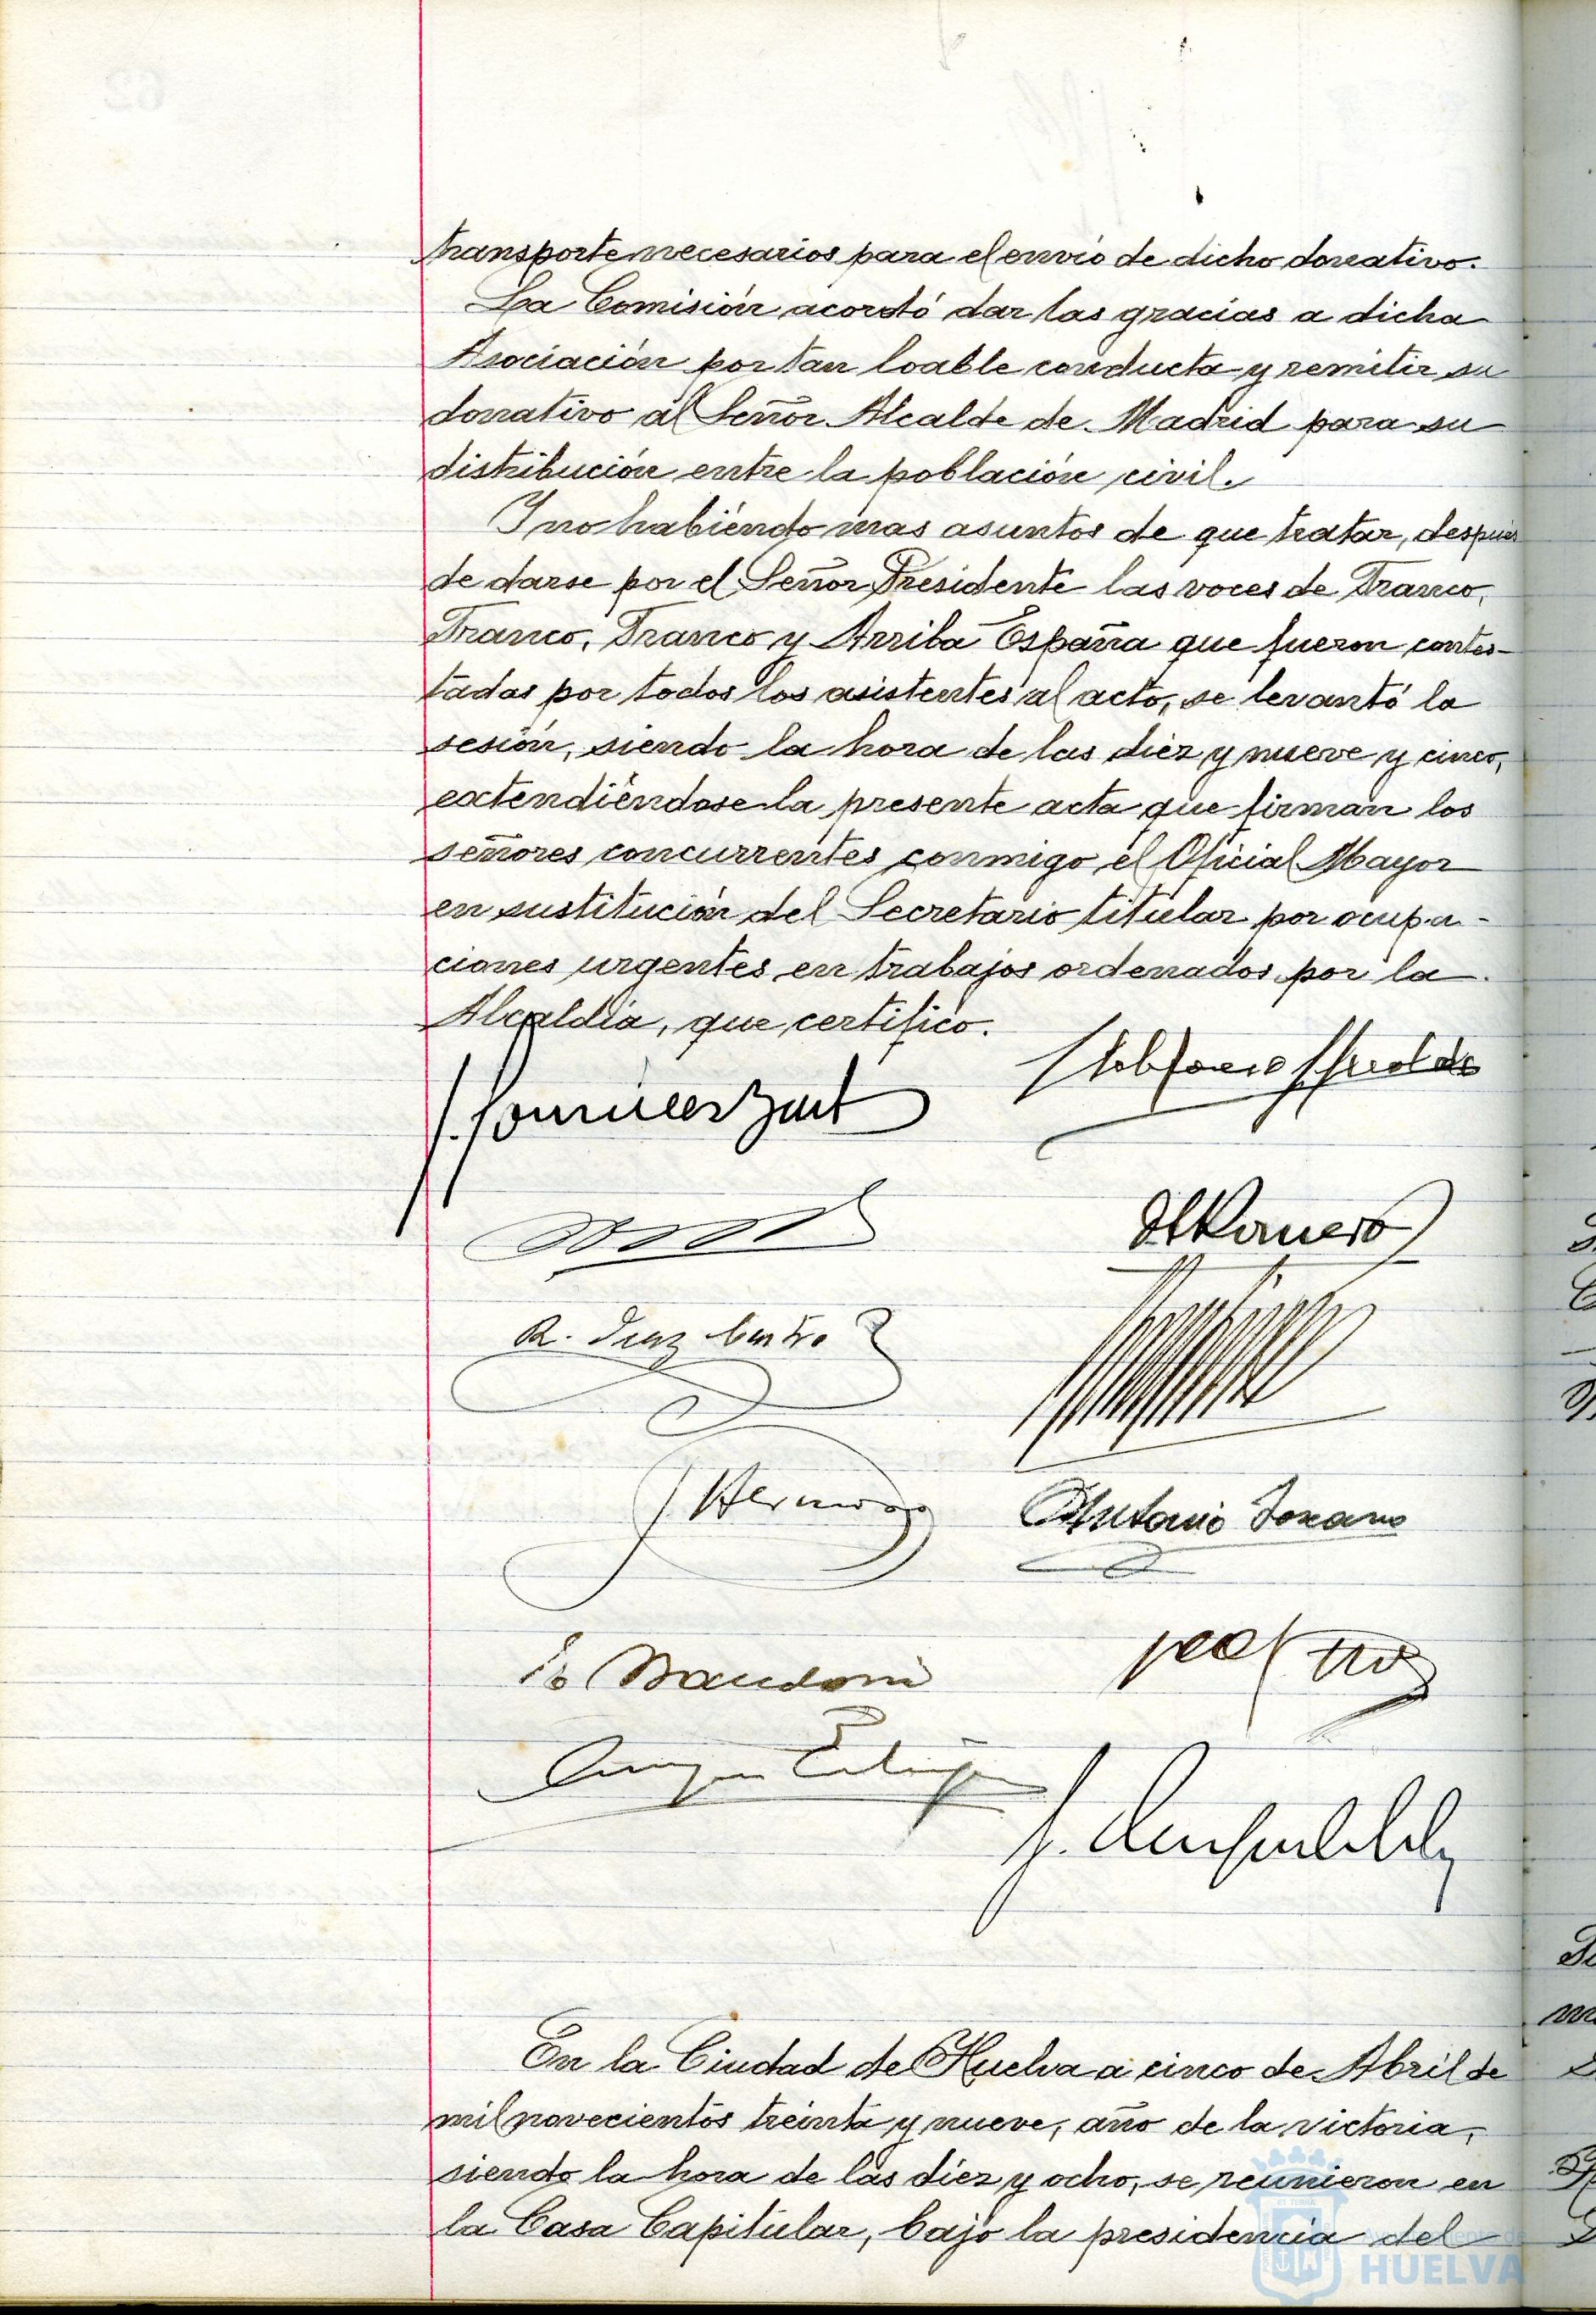 transporte necesarios para el envio de dicho donativo.
La Comisión acordó dar las gracias a dicha
Asociación por tan loable conducta y remitir su
donativo al Señor Alcalde de Madrid para su
distribución entre la población civil.
Y no habiéndo mas asuntos de que tratar, después
de darse por el Señor Presidente las voces de Franco,
Franco, Franco y Arriba España que fueron contes-
tadas por todos los asistentes al acto, se levantó la
sesión, siendo la hora de las diez y nueve y cinco,
extendiéndose la presente acta que firman los
señores concurrentes conmigo el Oficial Mayor
en sustitución del Secretario titular por ocupa-
ciones urgentes en trabajos ordenados por la
Alcaldía, que certifico.
R. Diaz
Antonio
En la Ciudad de Huelva a cinco de Abril de
mil novecientos treinta y nueve, año de la victoria,
siendo la hora de las diez y ocho, se reunieron en
la Casa Capitular, bajo la presidencia del
Ayuntamiento de
HUELVA